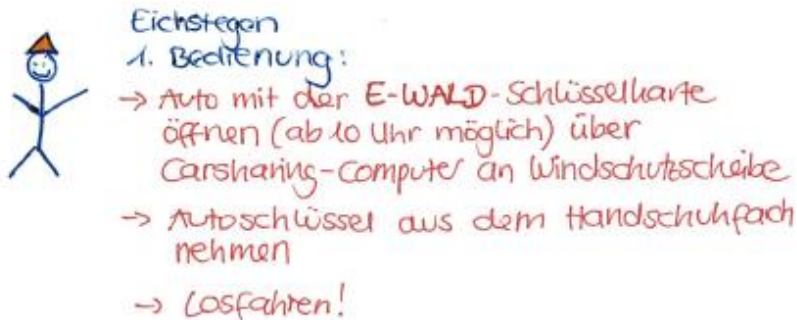 Eichstegen
1. Bedienung:
→ Auto mit der E-WALD-Schlüsselkarte
öffnen (ab 10 Uhr möglich) über
Carsharing-Computer an Windschutzscheibe
→ Autoschlüssel aus dem Handschuhfach
nehmen
→ Losfahren!